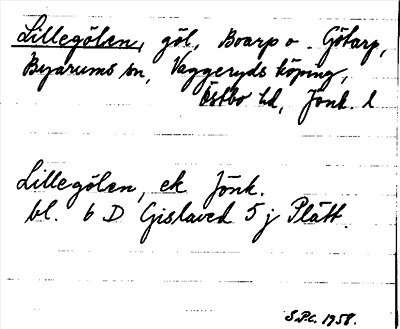 Lillegölen, göl, Boarp o. Götarp,
Byarums sn, Vaggeryds köping,
Östbo hd, Jönk. l
Lillegölen, ek Jönk.
bl. 6 D Gislaved 5 j Plätt.
S.P.C. 1958.